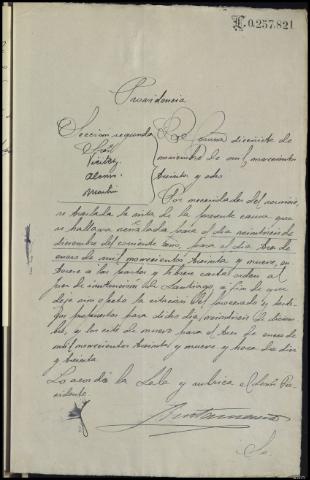 L.0.257.821
Providencia
Sección segunda
La Coruña diecisiete de
noviembre de mil novecientos
treinta y ocho
Por necesidades del servicio,
se traslada la vista de la presente causa que
se hallaba señalada para el dia veintiseis de
diciembre del corriente año, para el dia tres de
enero de mil novecientos treinta y nueve, en
terese a las partes y librese carta orden al
juez de instrucción de Santiago a fin de que
deje sin efecto la citación del procesado y testi-
gos para dicho dia veintiseis de diciem-
bre, y los cite de nuevo para el tres de enero de
mil novecientos treinta y nueve y hora de diez
y treinta
Lo acordó la Sala y rubrica el Señor Pre-
sidente